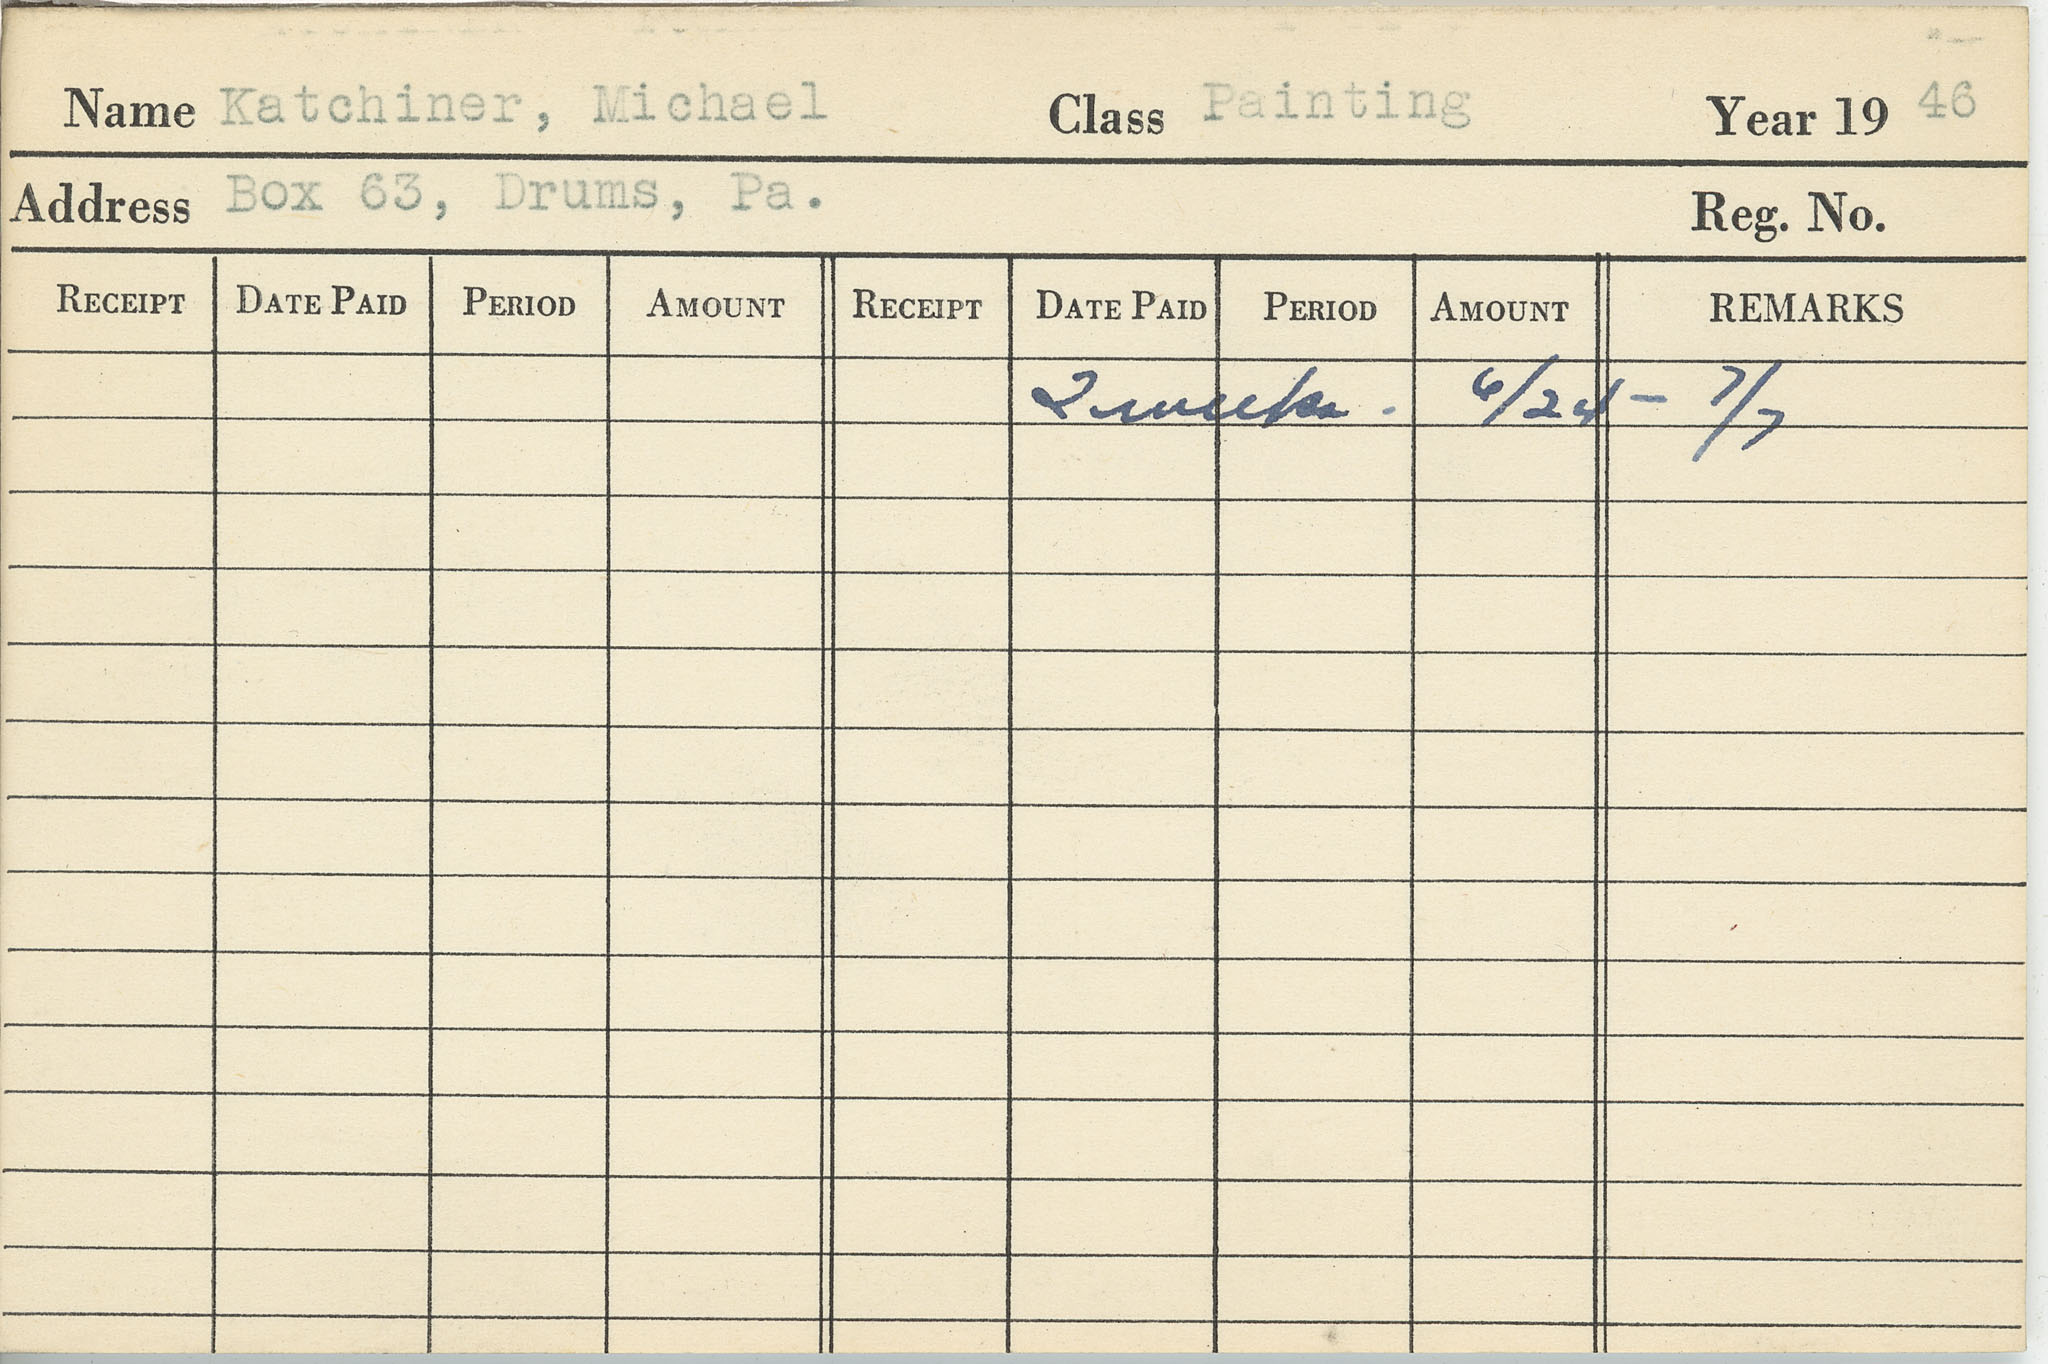 Name Katchiner, Michael Class Painting Year 19 46
Address Box 63, Drums, Pa. Reg. No.
RECEIPT DATE PAID PERIOD AMOUNT RECEIPT DATE PAID PERIOD AMOUNT REMARKS
2 weeks. 6/24 - 7/7